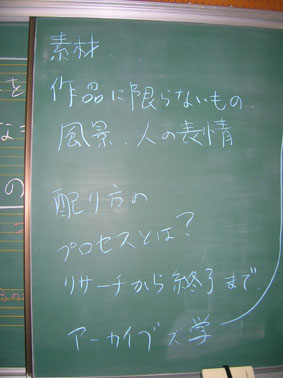 素材、
作品に限らないもの、
風景、人の表情
配り方の
プロセスとは?
リサーチから終了まで
アーカイブズ学
を
な
の